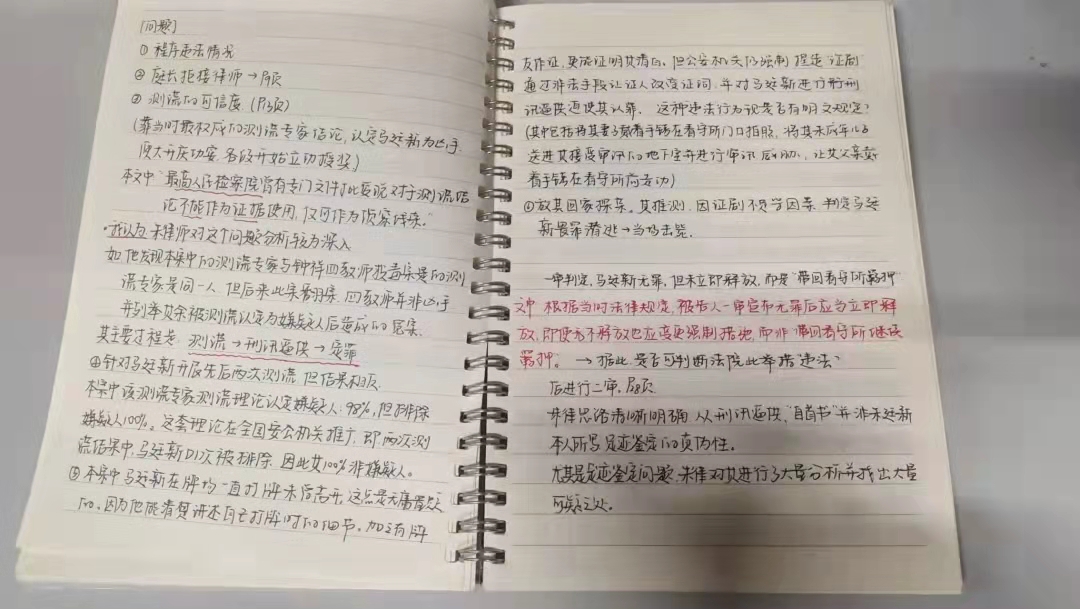 [问题]
① 程序违法情况
② 庭长拒接律师→
③ 测谎的可信度
(靠当时最权威的测谎专家结论,认定马廷新为凶手
大开庆功宴,各段开始立功授奖)
本文中"最高人民检察院曾有专门文件批复说对于测谎结
论不能作为证据使用,仅可作为侦察线索."
我认为朱律师对这个问题分析较为深入
如他发现本案中的测谎专家与钟祥四教师投毒案是的测
谎专家是同一人,但后来此案翻案,四教师并非凶手
并列举其余被测谎认定为嫌疑人后造成的冤案.
其主要过程是:测谎→刑讯逼供→定罪
④针对马廷新开展先后两次测谎,但结果相反.
本案中该测谎专家测谎理论认定嫌疑人:98%,但排除
嫌疑人100%。这套理论在全国安公机关推广,即两次测
谎结果中,马廷新仅1次被排除,因此其100%非嫌疑人。
⑤ 本案中马廷新在牌场一直打牌未曾离开,这点是无庸置疑
的,因为他能清楚讲述自己打牌时的细节,加之有牌
友作证,更能证明其清白,但公安机关仍强制捏造证剧
通过非法手段让证人改变证词,并对马廷新进行刑刑
讯逼供迫使其认罪. 这种违法行为现是否有明文规定?
(其中包括将其妻子戴着手铐在看守所门口拍照,将其未成年儿子
送进其接受审讯的地下室并进行审讯威胁,让其父亲戴
着手铐在看守所前走动)
⑥放其回家探亲,其推测,因证剧不足等因素,判定马廷
新畏罪潜逃→当场击毙.
一审判定,马廷新无罪,但未立即释放,而是"带回看守所羁押"
文中 根据当时法律规定,被告人一审宣布无罪后应当立即释
放,即使若不释放也应变更强制措施,而非带回看守所继续
羁押。 →据此,是否可判断法院此举措违法?
后进行二审,
朱律思洛清晰明确,从刑讯逼供,"自首书"并非马廷新
本人所写,足迹鉴定的真伪性。
尤其是足迹鉴定问题,朱律对其进行了大量分析并找出大量
可疑之处。